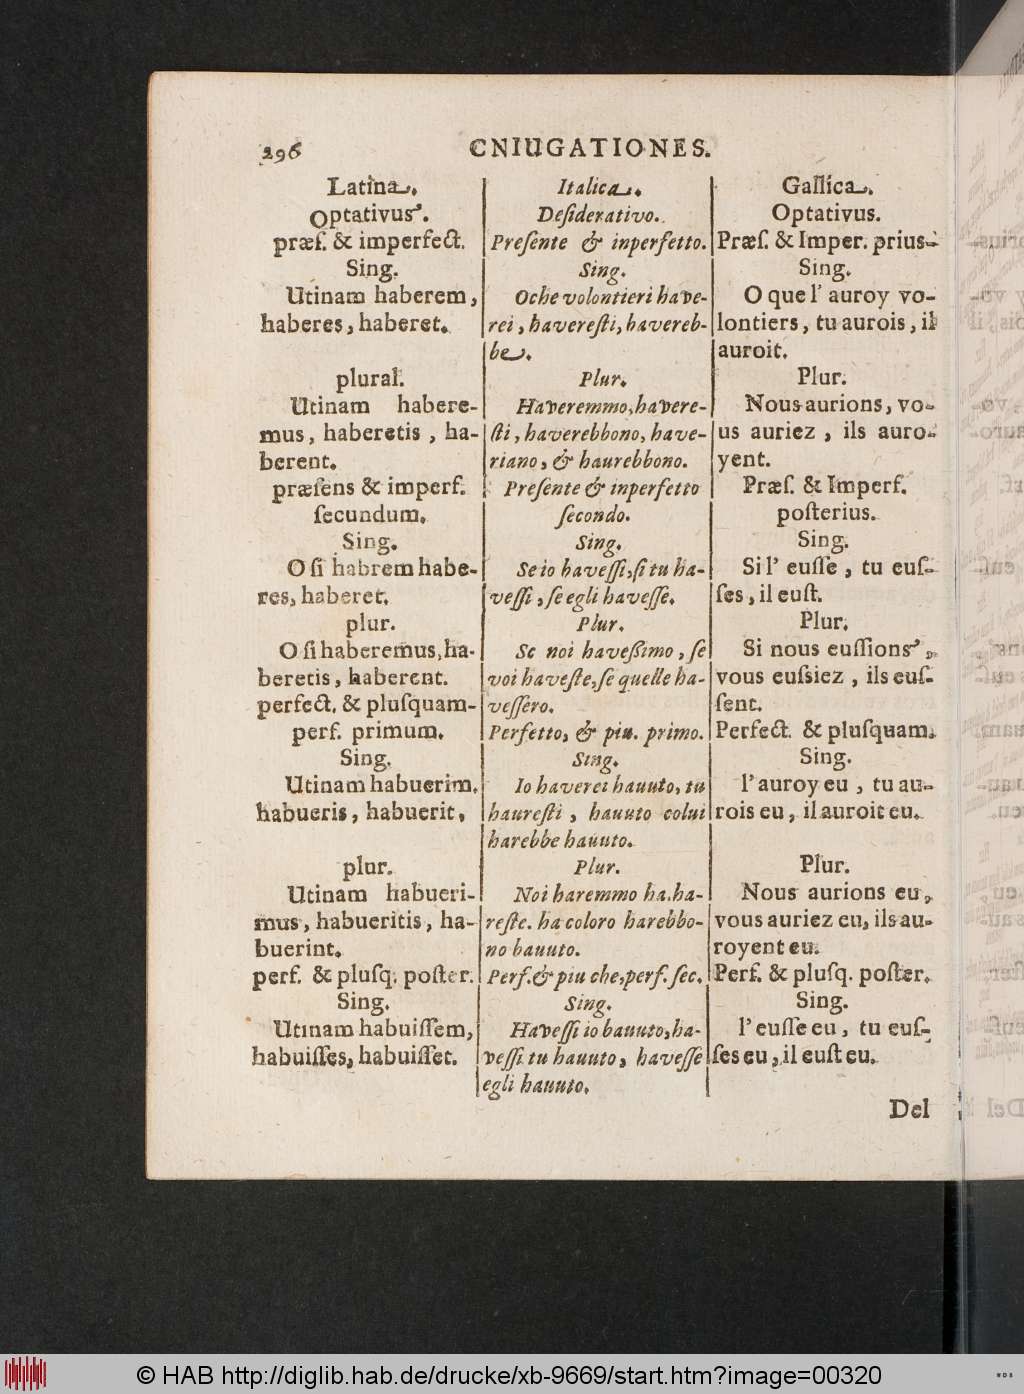 296 CNIUGATIONES.
Latina.
Optativus.
præſ. & imperfect.
Sing.
Utinam haberem,
haberes, haberet.
plural.
Utinam habere-
mus, haberetis, ha-
berent.
præſens & imperf.
ſecundum.
Sing.
O ſi habrem habe-
res, haberet.
plur.
O ſi haberemus, ha-
beretis, haberent.
perfect. & pluſquam-
perf. primum.
Sing.
Utinam habuerim,
habueris, habuerit,
plur.
Utinam habueri-
mus, habueritis, ha-
buerint.
perf. & pluſq. poſter.
Sing.
Utinam habuiſſem,
habuiſſes, habuiſſet.
Italica.
Deſiderativo.
Preſente & inperfetto.
Sing.
Oche volontieri have-
rei, havereſti, havereb-
be.
Plur.
Haveremmo, havere-
ſti, haverebbono, have-
riano, & haurebbono.
Preſente & inperfetto
ſecondo.
Sing.
Se io haveſſi, ſi tu ha-
veſſi, ſe egli haveſſe.
Plur.
Se noi haveſſimo, ſe
voi haveſte, ſe quelle ha-
veſſero.
Perfetto, & piu. primo.
Sing.
Io haverei hauuto, tu
haureſti, hauuto colui
harebbe hauuto.
Plur.
Noi haremmo ha. ha-
reſte. ha coloro harebbo-
no hauuto.
Perf. & piu che, perf. ſec.
Sing.
Haveſſi io hauuto, ha-
veſſi tu hauuto, haveſſe
egli hauuto.
Gallica.
Optativus.
Præſ. & Imper. prius-
Sing.
O que l' auroy vo-
lontiers, tu aurois, il
auroit.
Plur.
Nous aurions, vo-
us auriez, ils auro-
yent.
Præſ. & Imperf.
poſterius.
Sing.
Si l' euſſe, tu euſ-
ſes, il euſt.
Plur.
Si nous euſſions,
vous euſsiez, ils euſ-
ſent.
Perfect. & pluſquam.
Sing.
l'auroy eu, tu au-
rois eu, il auroit eu.
Plur.
Nous aurions eu,
vous auriez eu, ils au-
royent eu.
Perf. & pluſq. poſter.
Sing.
l'euſſe eu, tu euſ-
ſes eu, il euſt eu.
Del
© HAB http://diglib.hab.de/drucke/xb-9669/start.htm?image=00320